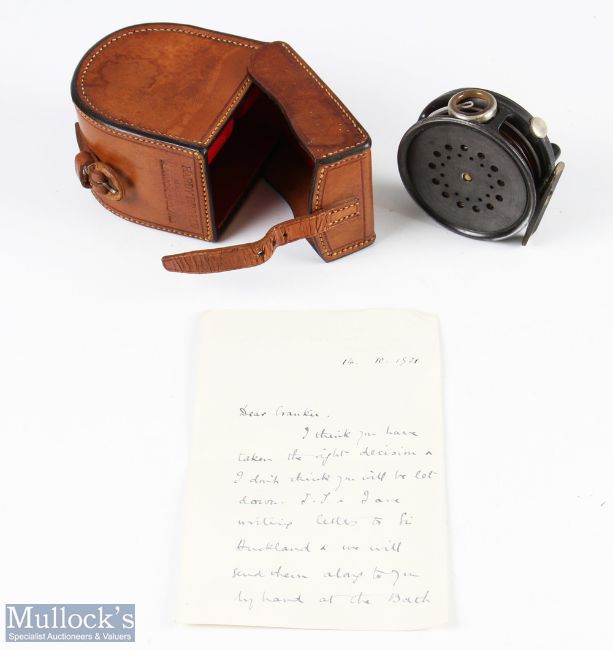 14. 10. 1921
Dear
I think you have
taken the right decision &
I don't think you will be let
down. & I are
writing letters to Sir
Auckland & we will
send them along to you
by hand at the
Mullock's
Specialist Auctioneers & Valuers